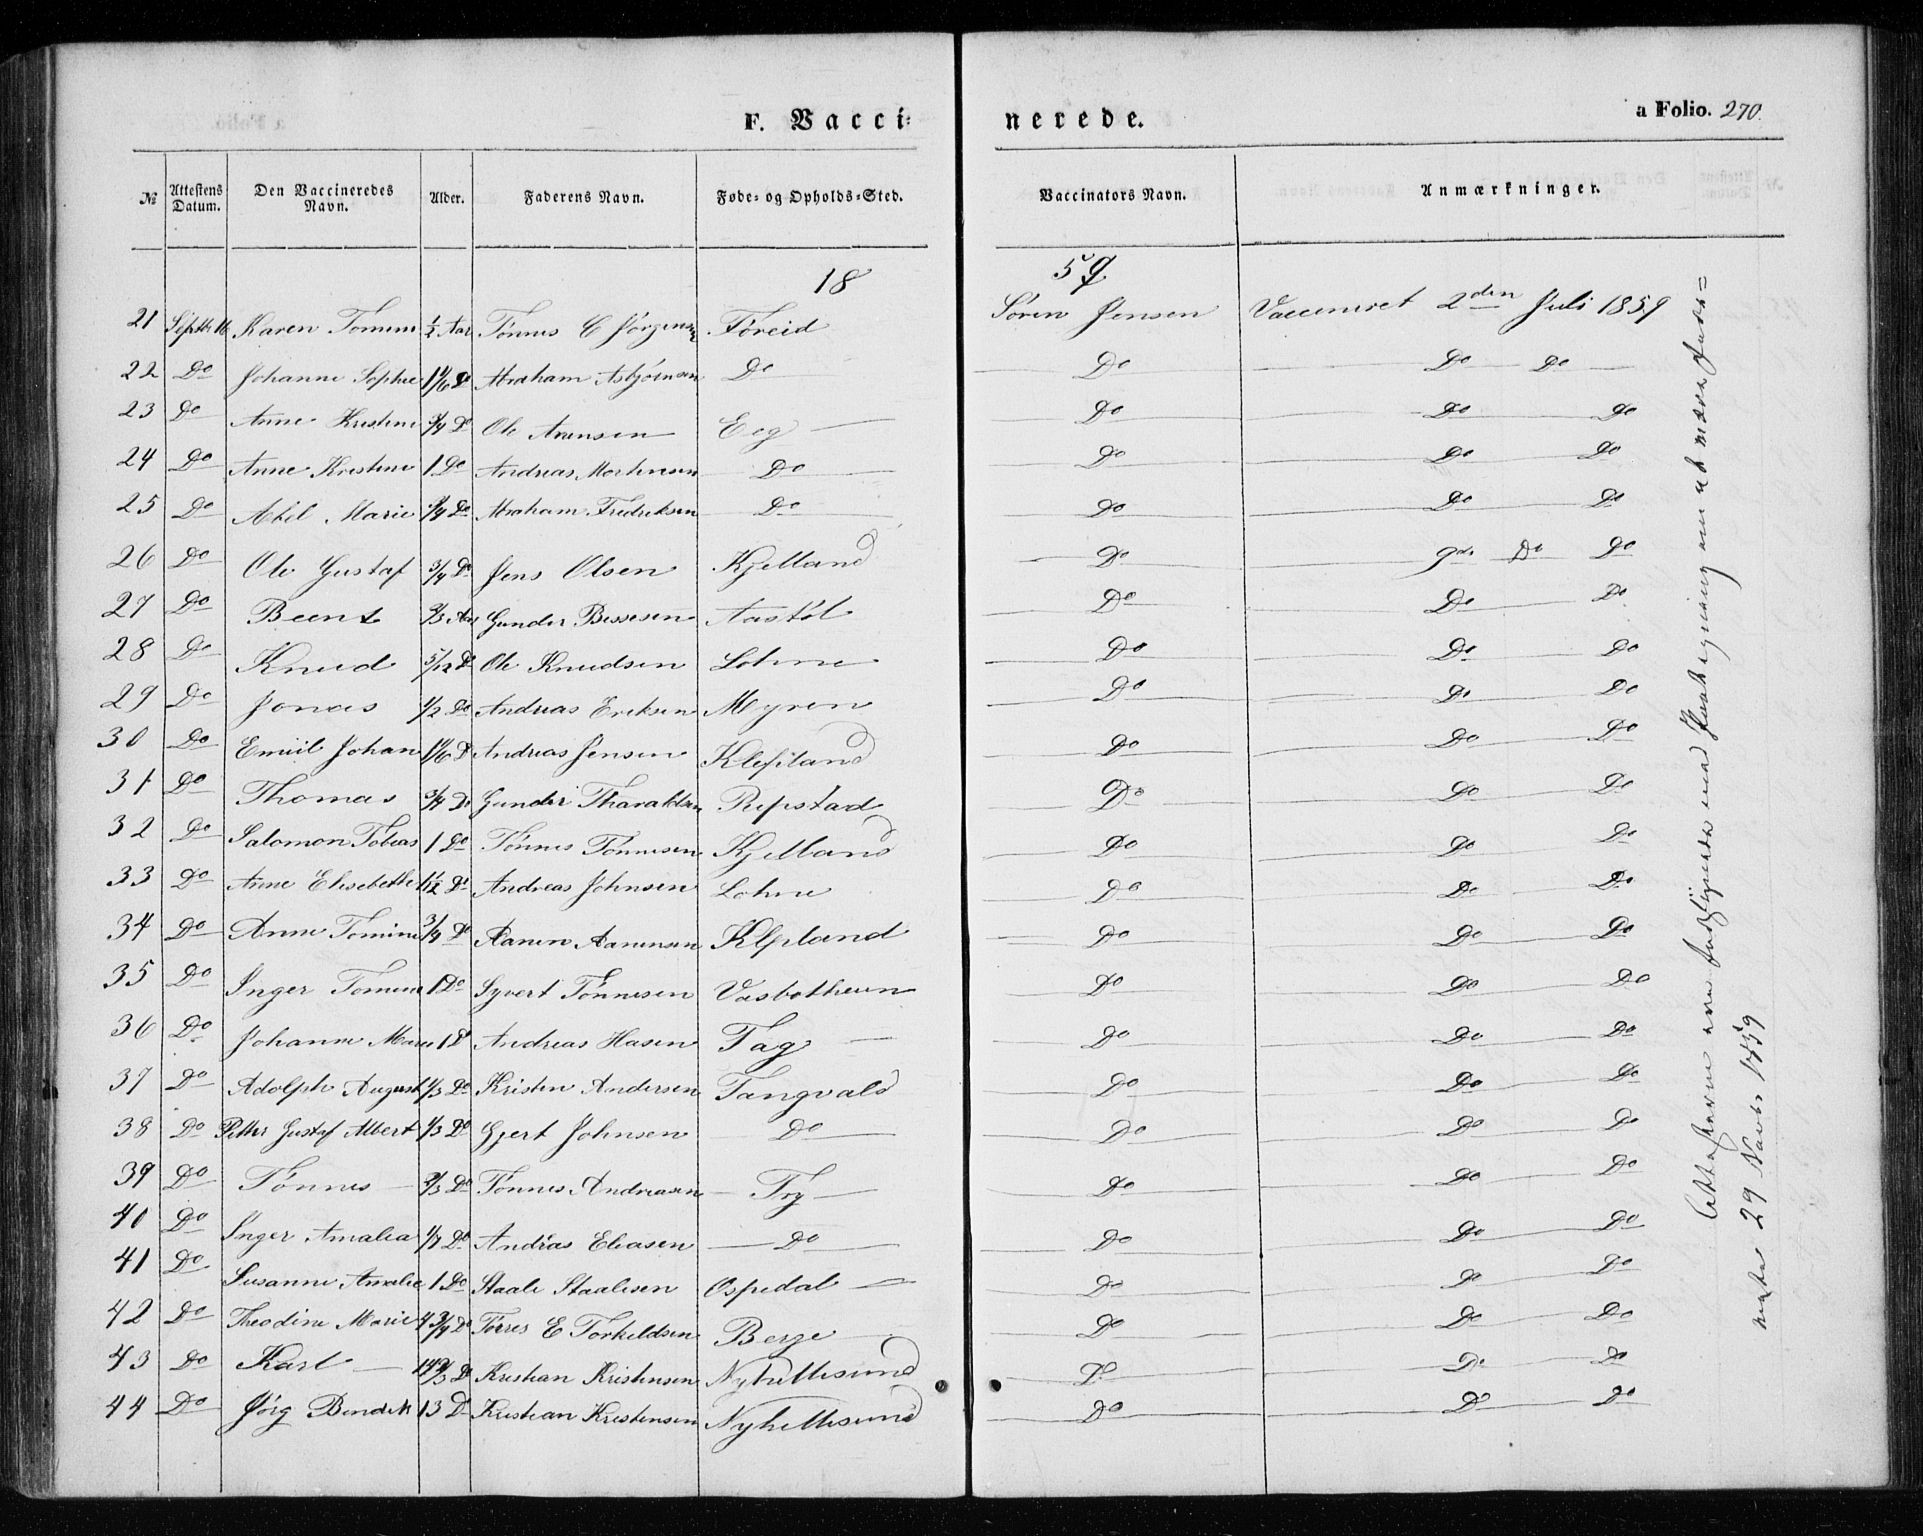 F. Vacci=nerede.
a Folio. 270.
№ Attestens Datum. Den Vaccineredes Navn. Alder. Faderens Navn. Føde= og Opholds=Sted. Vaccinators Navn. Anmærkninger.
18 59
21 Septbr 16 Karen Tomine 1/2 Aar Tønnes C Jørgensen Føreid Søren Jensen Vaccineret 2den Juli 1859
22 Do Johanne Sophie 1 1/6 Do Abraham Asbjørnsen Do Do Do Do
23 Do Anne Kristine 3/4 Do Ole Arensen Eeg Do Do Do
24 Do Anne Kristine 1 Do Andreas Mortensen Do Do Do Do
25 Do Abel Marie 3/4 Do Abraham Fredriksen Do Do Do Do
26 Do Ole Gustaf 3/4 Do Jens Olsen Kjelland Do Do Do
27 Do Beent 2/3 Aar Gunder Bessesen Aastøl Do Do Do
28 Do Knud 5/12 Do Ole Knudsen Lohne Do Do Do
29 Do Jonas 1/2 Do Andreas Eriksen Myren Do Do Do
30 Do Emiil Johan 1 1/6 Do Andreas Jensen Klepland Do Do Do
31 Do Thomas 3/4 Do Gunder Tharaldsen Repstad Do Do Do
32 Do Salomon Tobias 1 Do Tønnes Tønnesen Kjelland Do Do Do
33 Do Anne Elisebeth 1 1/12 Do Andreas Johnsen Lohne Do Do Do
34 Do Anne Tomine 3/4 Do Aanen Aanensen Klepland Do Do Do
35 Do Inger Tomine 1 Do Syvert Tønnesen Vasbotheien Do Do Do
36 Do Johanne Marie 1 Do Andreas Hasen Tag Do Do Do
37 Do Adolph August 1/3 Do Kristen Andersen Tangvald Do Do Do
38 Do Petter Gustaf Albert 1/3 Do Gjert Johnsen Do Do Do Do
39 Do Tønnes 2/3 Do Tønnes Andreasen Try Do Do Do
40 Do Inger Amalia 1/4 Do Andreas Eliasen Do Do Do Do
41 Do Susanne Amalie 1 Do Staale Staalesen Ospedal Do Do Do
42 Do Theodine Marie 4 3/4 Do Tørres E Torkeldsen Berge Do Do Do
43 Do Karl 14 2/3 Do Kristian Kristensen Nyhellesund Do Do Do
44 Do Jørg Bendik 13 Do Kristian Kristensen Nyhellesund Do Do Do
Attesterne ere
med
29 Novbr 1859